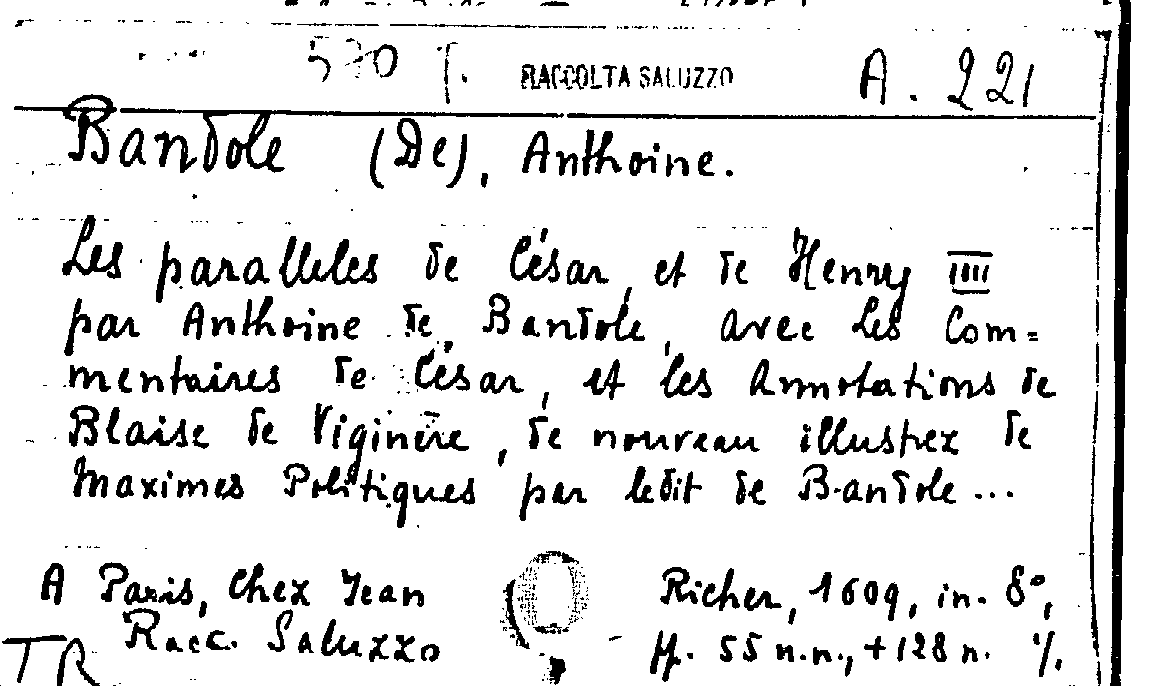 RACCOLTA SALUZZO A. 221
Bandole (De), Anthoine.
Les paralleles de César, et de Henry IIII
par Anthoine de Bandole, avec les Com=
mentaires de César, et les Annotations de
Blaise de Viginère, de nouveau illustrez de
Maximes Politiques par ledit de Bandole...
A Paris, Chez Jean Richer, 1609, in-8°,
Racc. Saluzzo ff. 55 n.n., +128 n. %.